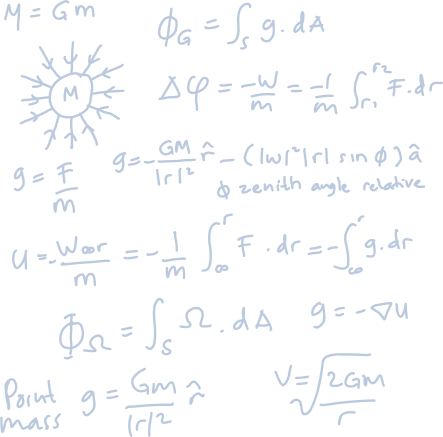 M = Gm
Φ_G = ∫_S g. dA
M
Δφ = -W/m = -1/m ∫_{r1}^{r2} F. dr
g = F/m
g = - GM/|r|² r̂ - (|w|²|r| sin ϕ) â
ϕ zenith angle relative
U = - W∞r/m = - 1/m ∫_∞^r F. dr = - ∫_∞^r g. dr
Φ_Ω = ∫_S Ω. dA
g = -∇U
Point mass g = Gm/|r|² r̂
V = √(2Gm/r)